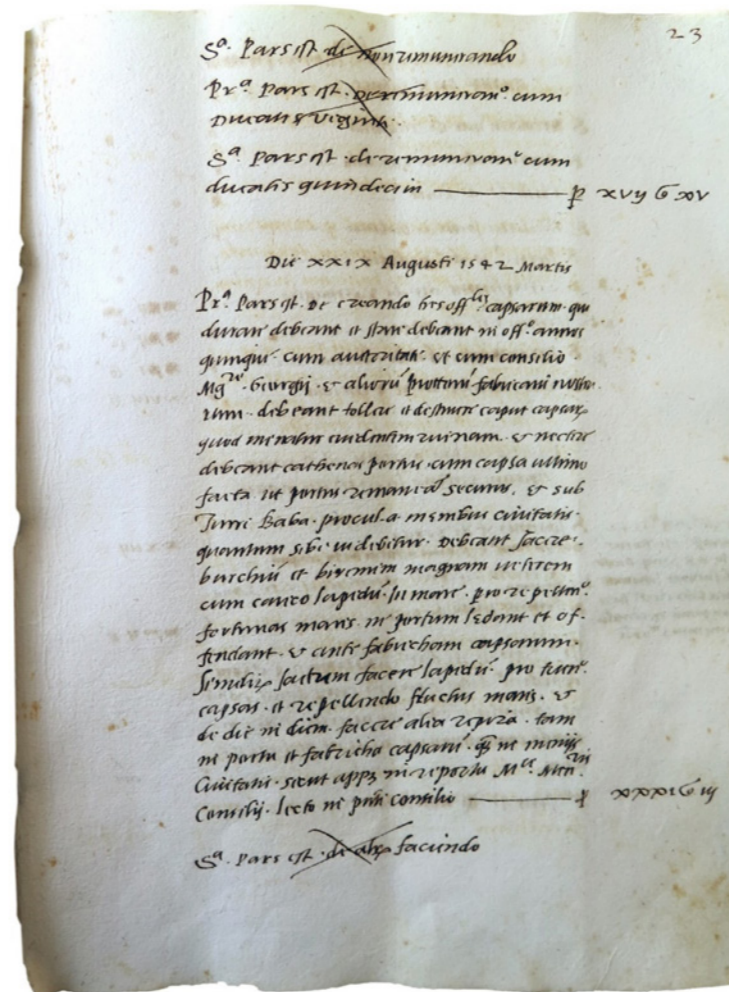 23
Sª. Pars est de non remunerando
Prª. Pars est. de remuneranº. cum
Ducatis viginti.
Sª. Pars est. de remuneranº cum
ducatis quindecim — p xvij G xv
Die xxix Augusti 1542 Martis
Prª. Pars est. De creando tres offles capsarum. qui
durare debeant et stare debeant in offº. annos
quinque. cum autoritate. et cum consilio
Mgri. Georgij. et aliorū protorū fabricani nostro
rum. debeant tollere et destruere caput capsarꝝ
quod minatur evidentem ruinam. et nectere
debeant cathenas portus. cum capsa ultimo
facta. ut portus remaneat securus. et sub
Turri Baba. procul a menibus civitatis.
quantum sibi videbitur. Debeant facere.
burchiū et biremem magnam veterem
cum carco lapidū. in mare. pro repellenº.
fortunas maris. ne portum ledant et of-
fendant. et ante fabricham capsarum.
Similiꝝ factum facere lapidū. pro tuenº.
capsas. et repellendo fluctus maris. et
de die in diem. facere alia repara. tam
in portu et fabricha capsarū. qȝ in menijs
Civitatis. sicut appȝ in reportu Mci. Minoris
Consilij. lecto in pnti consilio — p xxxi G iij
Sª. Pars est. de alr faciendo